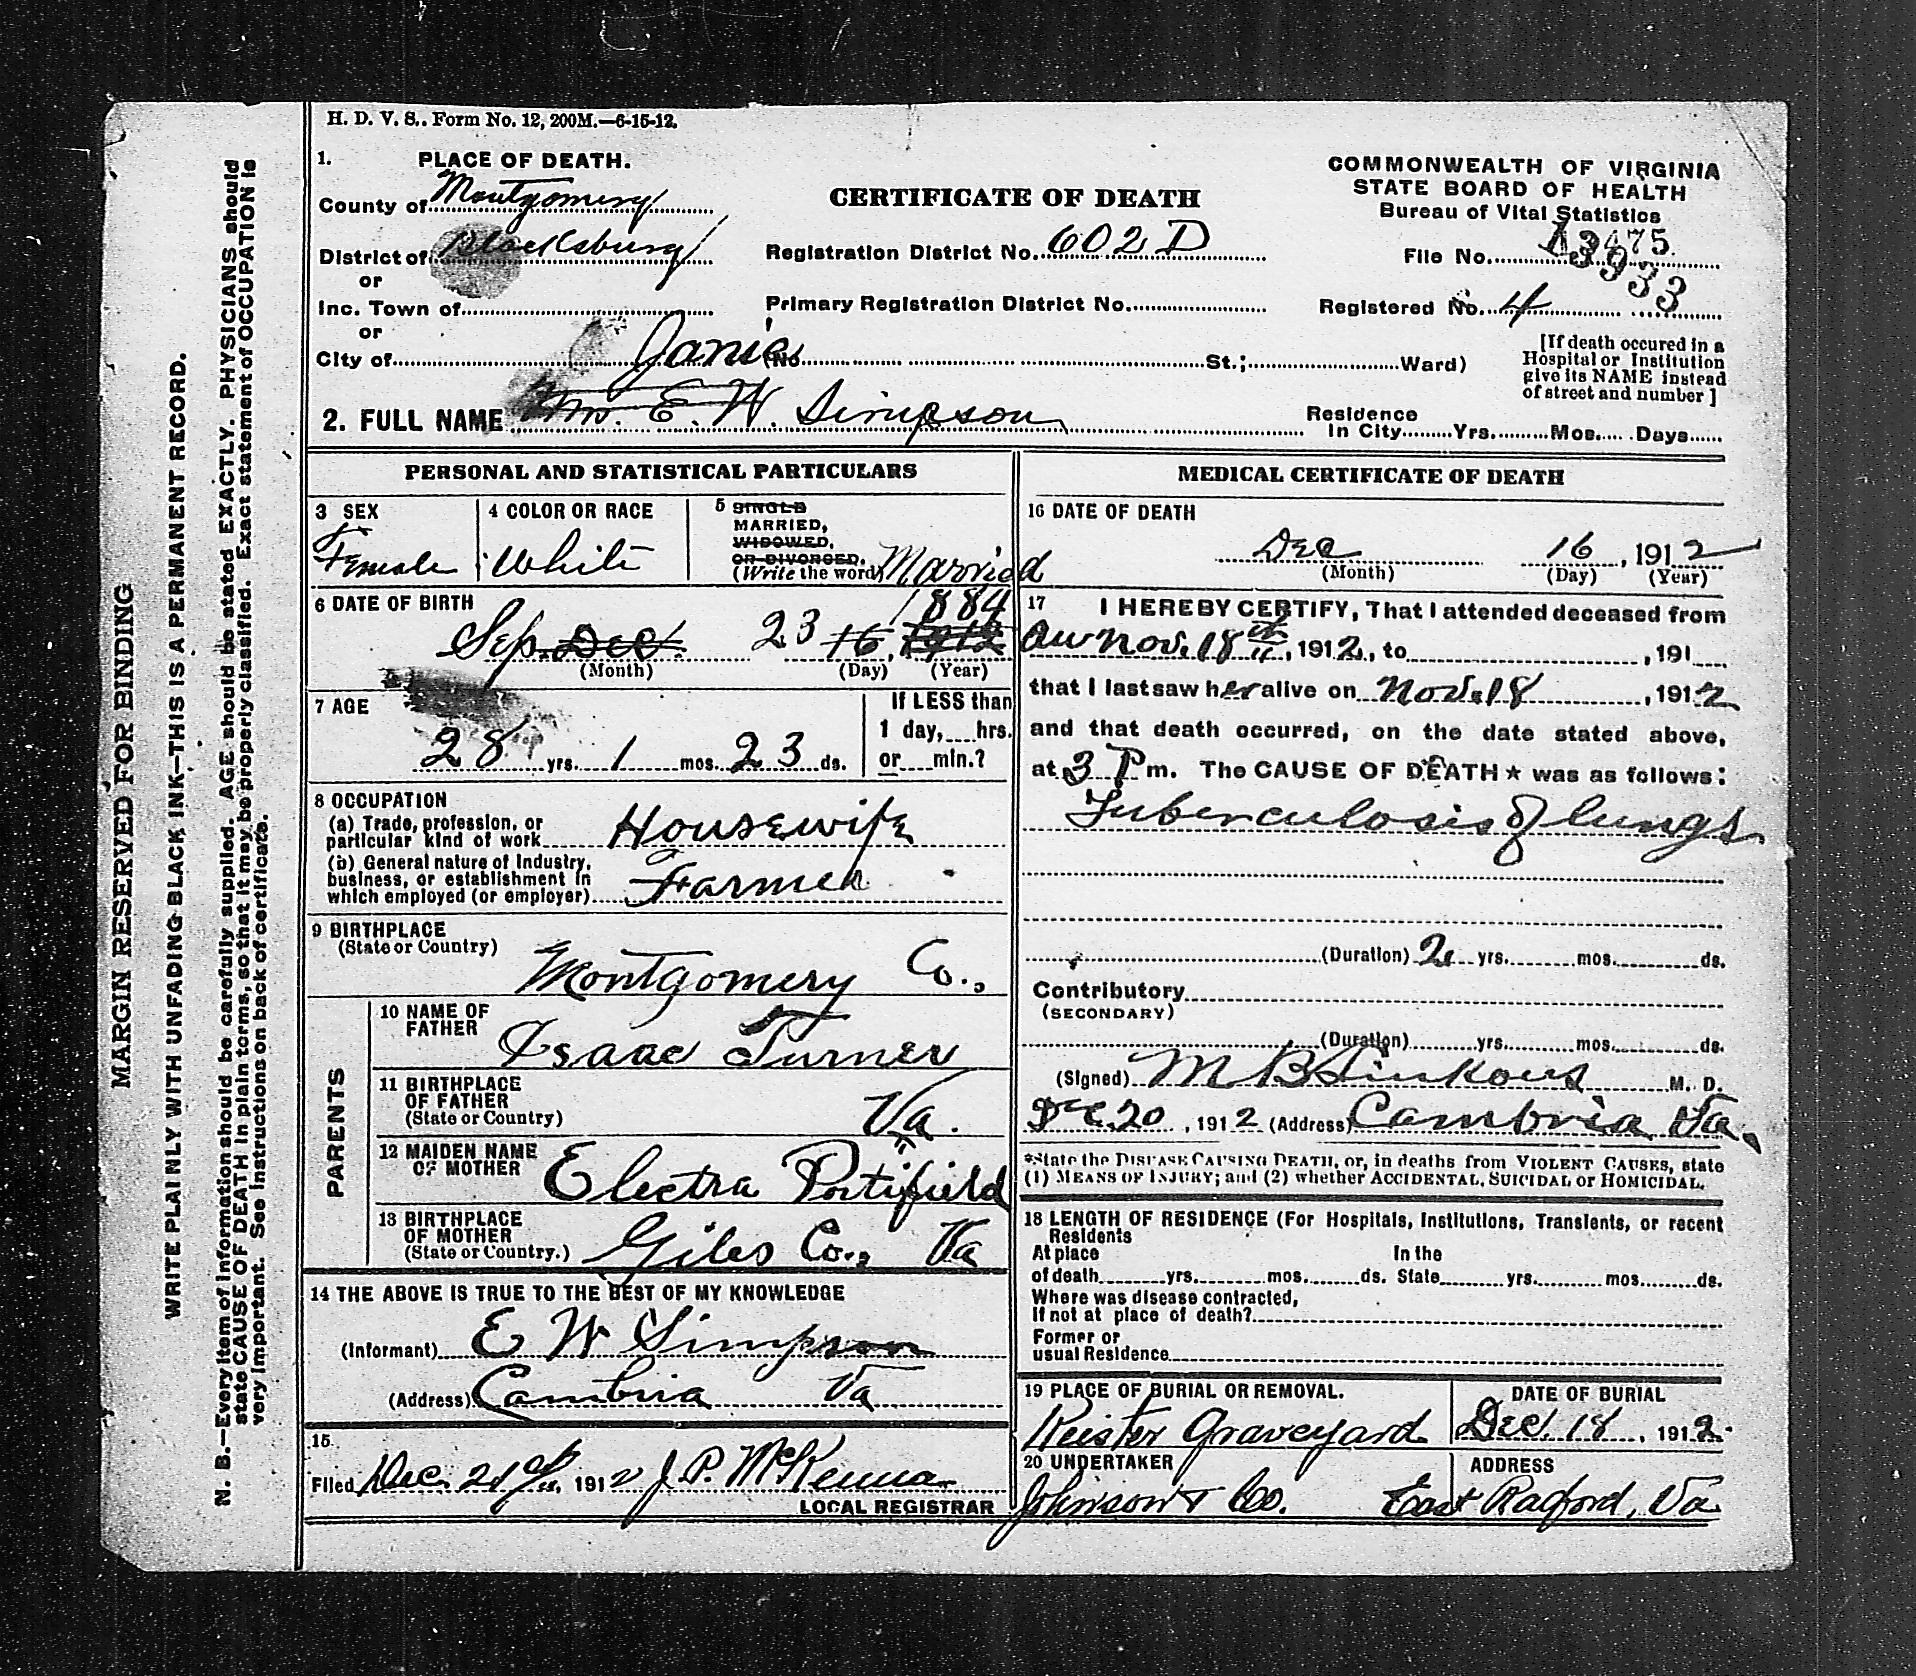 H. D. V. S.. Form No. 12, 200M.—6-15-12.
1. PLACE OF DEATH.
County of Montgomery
District of Blacksburg
or
Inc. Town of
or
City of
CERTIFICATE OF DEATH
Registration District No. 602 D
Primary Registration District No.
(No St.; Ward)
COMMONWEALTH OF VIRGINIA
STATE BOARD OF HEALTH
Bureau of Vital Statistics
File No. 13475
13933
Registered No. 4
[If death occured in a
Hospital or Institution
give its NAME instead
of street and number ]
Janie
2. FULL NAME Mrs. E. W. Simpson
Residence
In City Yrs. Mos. Days
PERSONAL AND STATISTICAL PARTICULARS
3 SEX
Female
4 COLOR OR RACE
White
5 SINGLE
MARRIED,
WIDOWED,
OR DIVORCED.
(Write the word) Married
6 DATE OF BIRTH
1884
Sep. Dec. 23 16, 1912
(Month) (Day) (Year)
7 AGE
28 yrs. 1 mos. 23 ds.
If LESS than
1 day, hrs.
or min.?
8 OCCUPATION
(a) Trade, profession, or
particular kind of work Housewife
(b) General nature of Industry,
business, or establishment in
which employed (or employer) Farmer
9 BIRTHPLACE
(State or Country)
Montgomery Co.,
PARENTS
10 NAME OF
FATHER
Isaac Turner
11 BIRTHPLACE
OF FATHER
(State or Country)
Va.
12 MAIDEN NAME
OF MOTHER
Electra Portifield
13 BIRTHPLACE
OF MOTHER
(State or Country.) Giles Co., Va
14 THE ABOVE IS TRUE TO THE BEST OF MY KNOWLEDGE
(Informant) E W Simpson
(Address) Cambria Va
15.
Filed Dec. 21st, 1912 J. P. McKenna
LOCAL REGISTRAR
MEDICAL CERTIFICATE OF DEATH
16 DATE OF DEATH
Dec 16, 1912
(Month) (Day) (Year)
17 I HEREBY CERTIFY, That I attended deceased from
Nov. 18th, 1912, to , 191
that I last saw her alive on Nov. 18, 1912
and that death occurred, on the date stated above,
at 3 P m. The CAUSE OF DEATH * was as follows:
Tuberculosis of lungs
(Duration) 2 yrs. mos. ds.
Contributory
(SECONDARY)
(Duration) yrs. mos. ds.
(Signed) M B Linkous M. D.
Dec. 20, 1912 (Address) Cambria Va.
*State the DISEASE CAUSING DEATH, or, in deaths from VIOLENT CAUSES, state
(1) MEANS OF INJURY; and (2) whether ACCIDENTAL, SUICIDAL or HOMICIDAL.
18 LENGTH OF RESIDENCE (For Hospitals, Institutions, Transients, or recent
Residents
At place In the
of death yrs. mos. ds. State yrs. mos. ds.
Where was disease contracted,
If not at place of death?
Former or
usual Residence
19 PLACE OF BURIAL OR REMOVAL.
Keister Graveyard
DATE OF BURIAL
Dec. 18, 1912.
20 UNDERTAKER
Johnson & Co.
ADDRESS
East Radford, Va
MARGIN RESERVED FOR BINDING
WRITE PLAINLY WITH UNFADING BLACK INK—THIS IS A PERMANENT RECORD.
N. B.—Every item of information should be carefully supplied. AGE should be stated EXACTLY. PHYSICIANS should
state CAUSE OF DEATH in plain terms, so that it may be properly classified. Exact statement of OCCUPATION is
very important. See instructions on back of certificate.